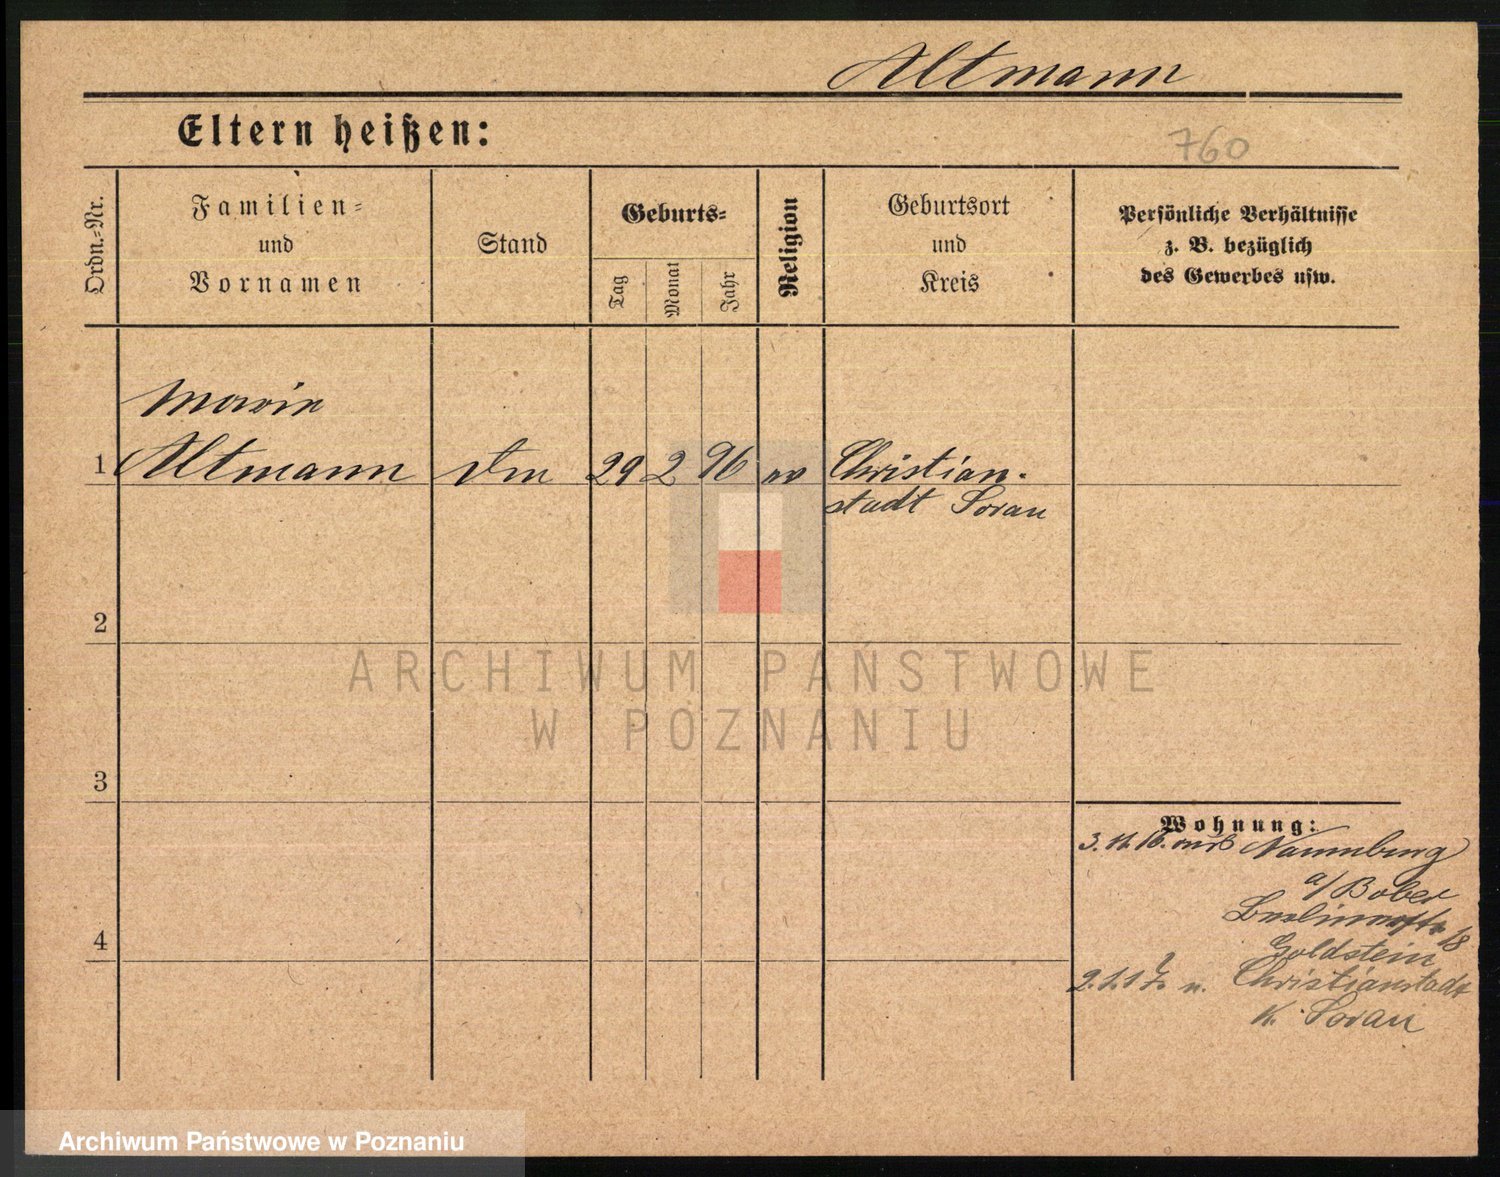 Altmann
Eltern heißen:
760
Ordn.=Nr.
Familien=
und
Vornamen
Stand
Geburts=
Tag
Monat
Jahr
Religion
Geburtsort
und
Kreis
Persönliche Verhältnisse
z. B. bezüglich
des Gewerbes usw.
Marie
1 Altmann 29 2 96 ev Christian-
stadt Sorau
2
3
4
Wohnung:
3. 11. 16. aus Naumburg
a/Bober
18
Goldstein
2.1.17. n. Christianstadt
K. Sorau
ARCHIWUM PAŃSTWOWE
W POZNANIU
Archiwum Państwowe w Poznaniu